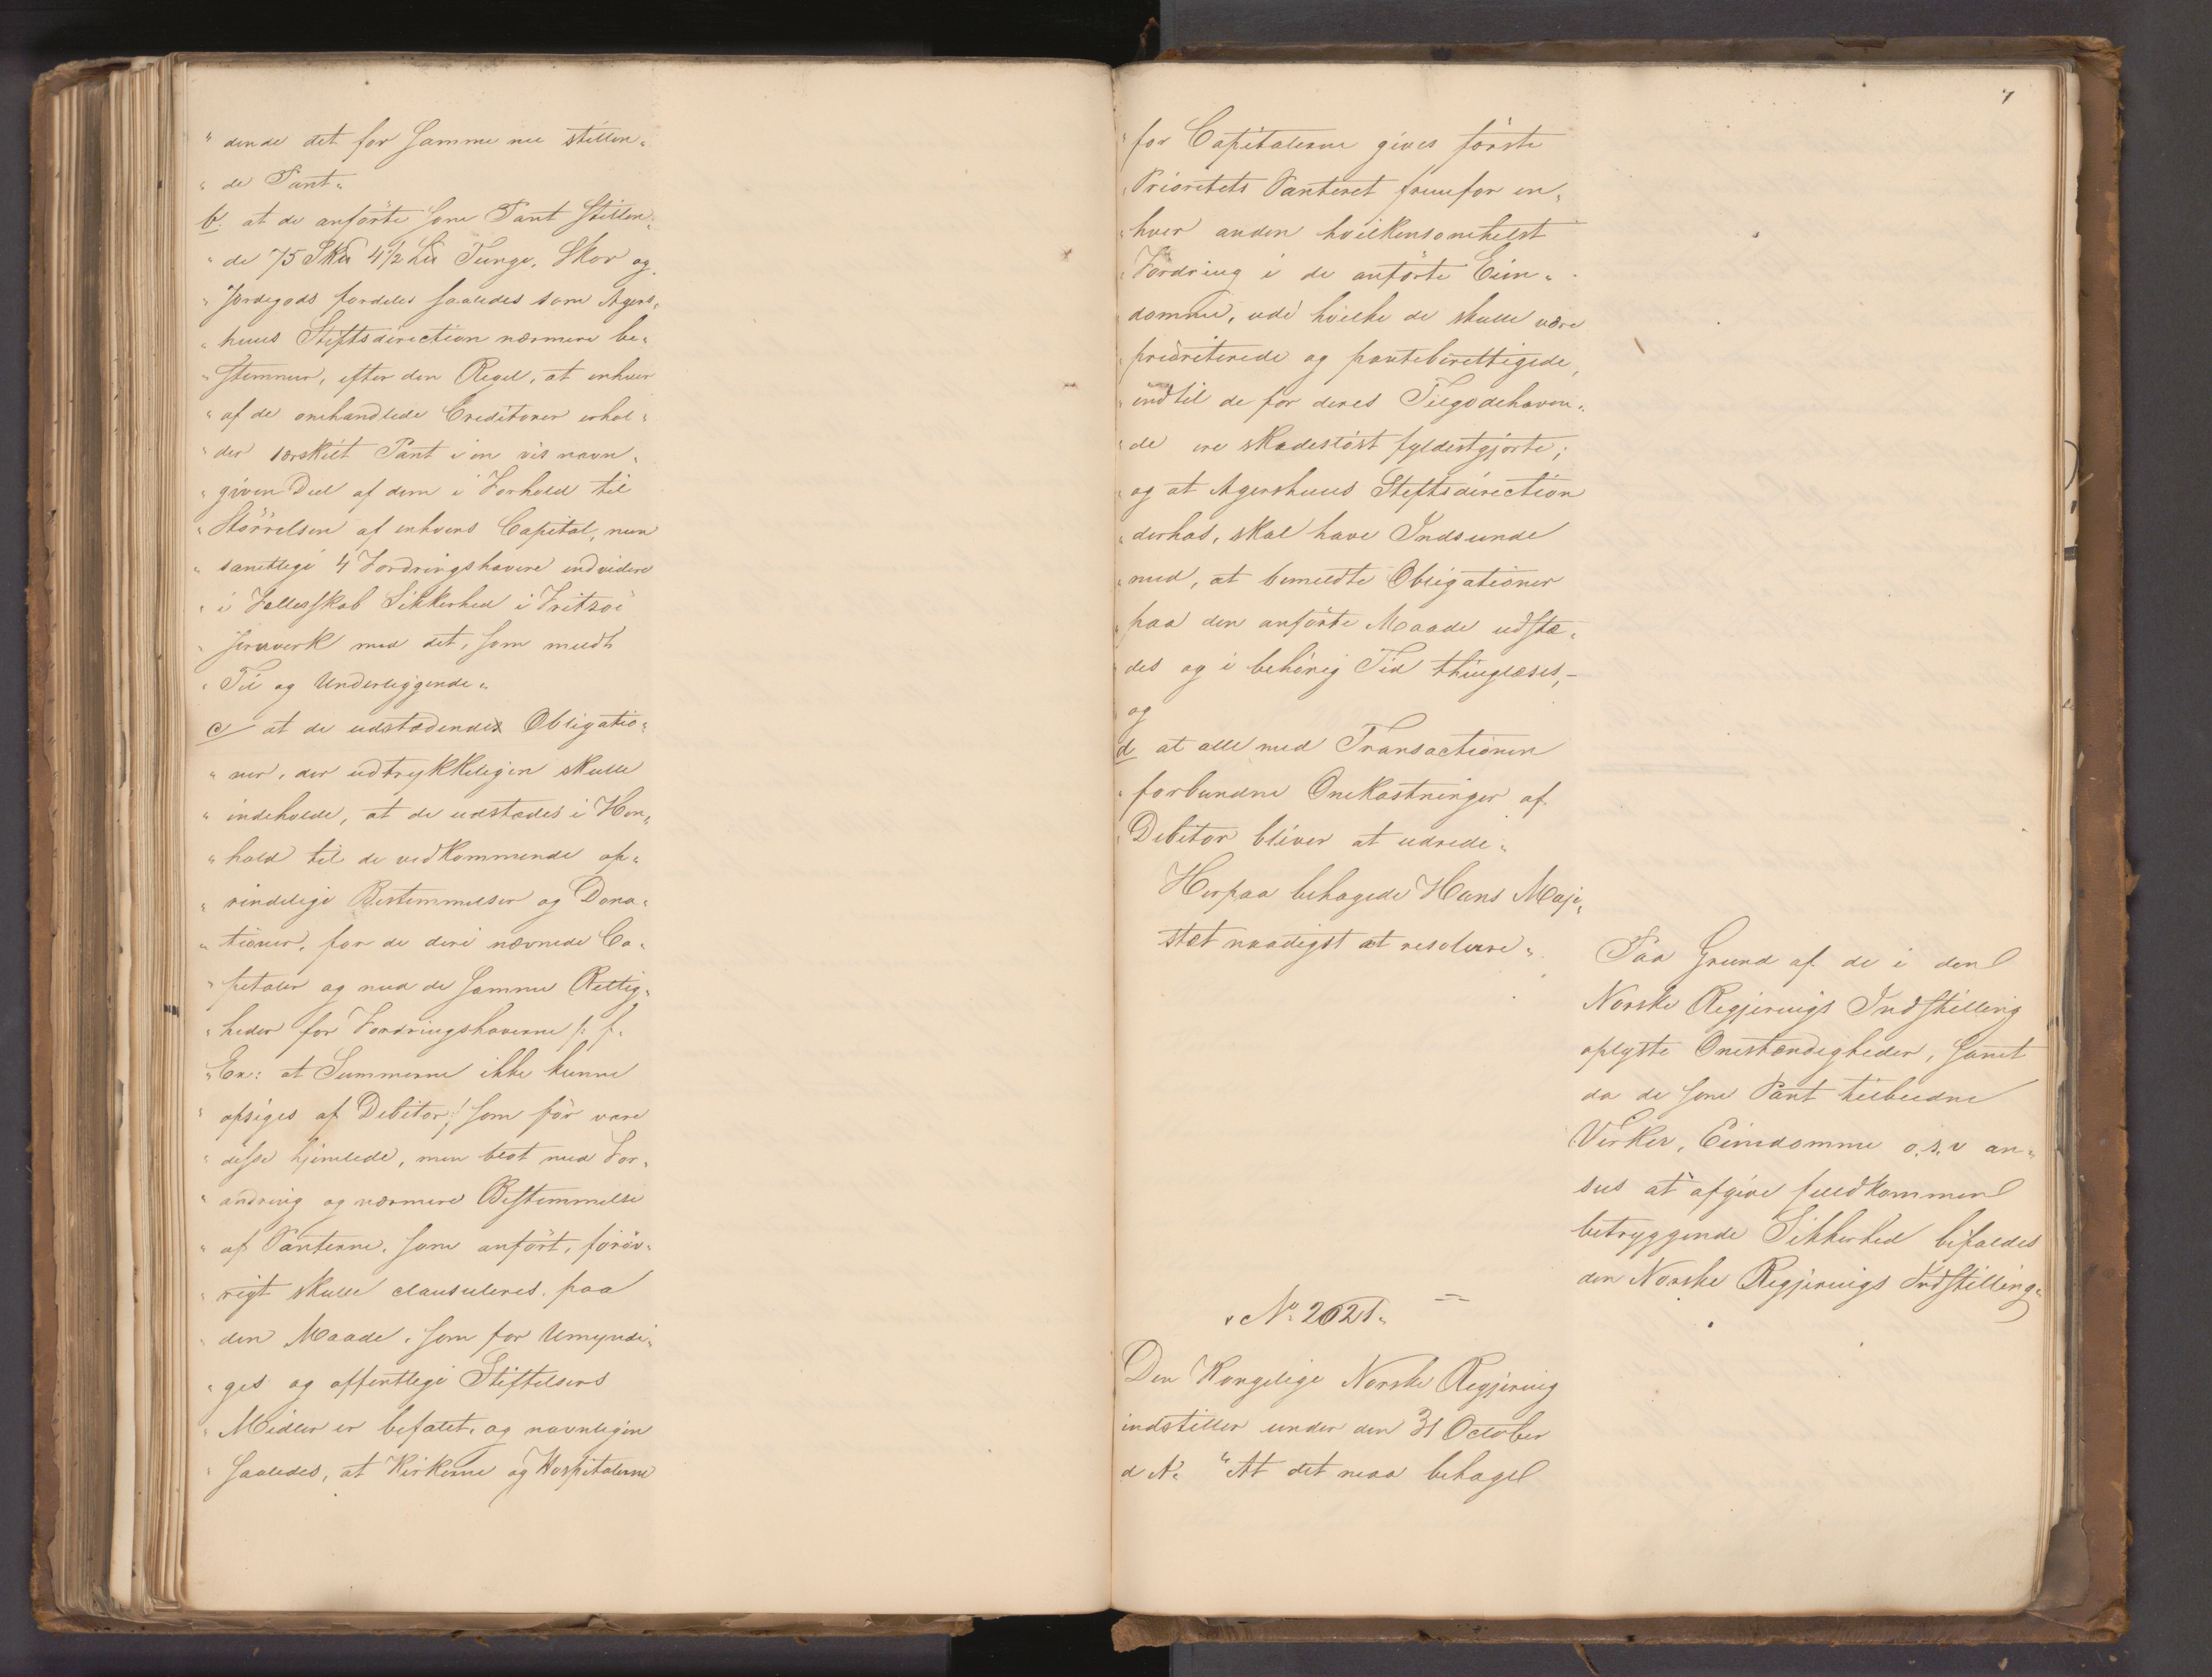 " dende det for samme nu stillen„
„ de Pant„
b. at de anförte som Pant stillen„
„ de 75 Skd 4½ Lis Tunge, Skov og
„ Jordegods fordeles saaledes som Agers„
„ huus Stiftsdirection nærmere be„
„ stemmer, efter den Regel, at enhver
„ af de omhandlede Creditorer erhol„
„ der særskilt Pant i en vis navn„
„ given Deel af dem i Forhold til
„ Störrelsen af enhvers Capital, men
„ samtlige 4 Fordringshavere endvidere
„ i Fællesskab Sikkerhed i Fritzöe
„ Jernverk med det, som meldt
„ Til og Underliggende„
c/ at de udstædende Obligatio„
„ ner, der udtrykkeligen skulle
„ indeholde, at de udstædes i Hen„
„ hold til de vedkommende op„
„ rindelige Bestemmelser og Dona„
„ tioner, for de deri nævnede Ca„
„ pitaler og med de samme Rettig„
„ heder for Fordringshaverne /: f.
„ Ex: at Summerne ikke kunne
„ opsiges af Debitor :/ som för vare
„ disse hjemlede, men blot med For„
„ andring og nærmere Bestemmelse
„ af Panterne, som anfört, foröv„
„ rigt skulle clausuleres paa
„ den Maade, som for Umyndi„
„ ges og offentlige Stiftelsers
„ Midler er befalet, og navnligen
„ saaledes, at Kirkerne og Hospitalerne
7
„ for Capitalerne gives förste
„ Prioritets Panteret fremfor en„
„ hver anden hvilkensomehelst
„ Fordring i de anförte Eien„
„ domme, udi hvilke de skulle være
„ prioriterede og panteberettigede,
„ indtil de for deres Tilgodehaven„
„ de ere skadeslöst fyldestgjorte;
„ og at Agershuus Stiftsdirection
„ derhos, skal have Indseende
„ med, at bemeldte Obligationer
„ paa den anförte Maade udstæ„
„ des og i behörig Tid thinglæses,–
og
d at alle med Transactionen
„ forbundne Omkostninger af
„ Debitor bliver at udrede„
Herpaa behagede Hans Maje„
stæt naadigst at resolvere„
Paa Grund af de i den
Norske Regjerings Indstilling
oplyste Omstændigheder, samt
da de som Pant tilbudne
Verker, Eiendomme o.s.v an„
sees at afgive fuldkommen
betryggende Sikkerhed bifaldes
den Norske Regjerings Indstilling„
„ No 2021„
Den Kongelige Norske Regjering
indstiller under den 31 October
d A: "At det maa behage